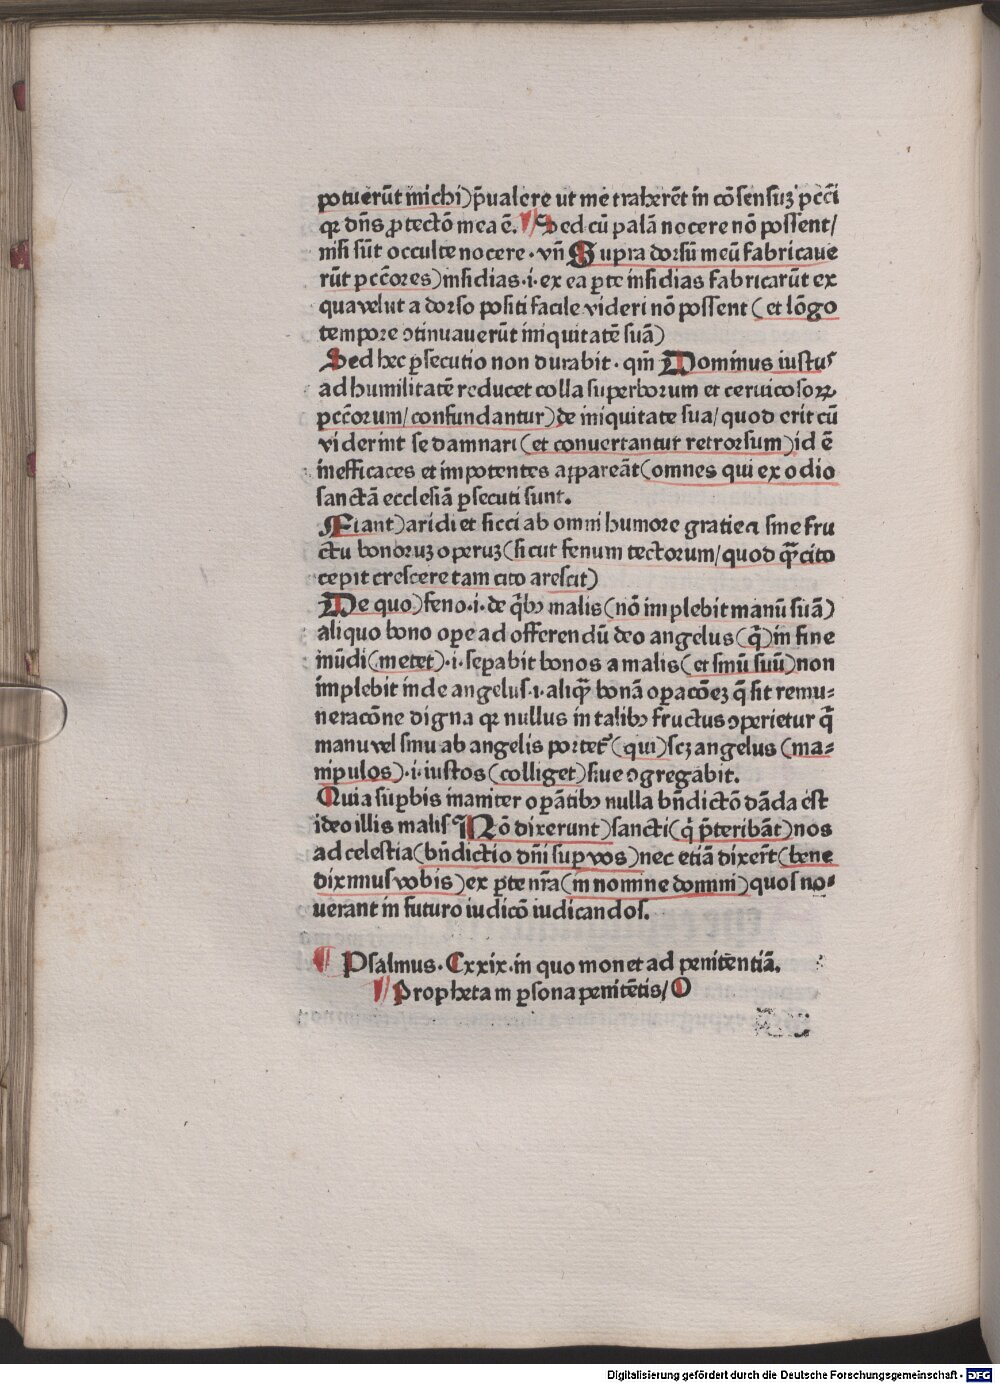 potuerūt michi) p̄ualere ut me traherēt in cōsensuꝫ pcc̄i
qꝛ dn̄s ꝓtectō mea ē. Sed cū palā nocere nō possent/
nisi sūt occulte nocere · vn̄ Supra dorsū meū fabricaue
rūt pcc̄ores) insidias ·i· ex ea ꝑte insidias fabricarūt ex
qua velut a dorso positi facile videri nō possent (et lōgo
tempore ꝯtinuauerūt iniquitatē suā)
Sed hec ꝑsecutio non durabit · qm̄ Dominus iustus
ad humilitatē reducet colla superborum et ceruicosoꝝ
pcc̄orum/ confundantur) de iniquitate sua/ quod erit cū
viderint se damnari (et conuertantur retrorsum) id ē
inefficaces et impotentes appareāt (omnes qui ex odio
sanctā ecclesiā ꝑsecuti sunt.
Fiant) aridi et sicci ab omni humore gratie ⁊ sine fru
ctu bonoruꝫ operuꝫ (sicut fenum tectorum/ quod q̄ꝫ cito
cepit crescere tam cito arescit)
De quo) feno ·i· de q̄bꝫ malis (nō implebit manū suā)
aliquo bono oꝑe ad offerendū deo angelus (q̄) in fine
mūdi (metet) ·i· seꝑabit bonos a malis (et sinū suū) non
implebit inde angelus ·i· aliq̄ꝫ bonā oꝑacōeꝫ q̄ sit remu⸗
neracōne digna qꝛ nullus in talibꝫ fructus ꝯperietur q̄
manu vel sinu ab angelis portet᷑ (qui) scꝫ angelus (ma⸗
nipulos) ·i· iustos (colliget) siue ꝯgregabit.
Quia suꝑbis inaniter oꝑātibꝫ nulla bn̄dictō dāda est
ideo illis malis Nō dixerunt) sancti (q̇ p̄teribāt) nos
ad celestia (bn̄dictio dn̄i suꝑ vos) nec etiā dixer̄t (bene
diximus vobis) ex ꝑte nr̄a (in nomine domini) quos no⸗
uerant in futuro iudicō iudicandos.
Psalmus · Cxxix · in quo monet ad penitentiā.
Propheta in ꝑsona penitētis/ O
Digitalisierung gefördert durch die Deutsche Forschungsgemeinschaft - DFG